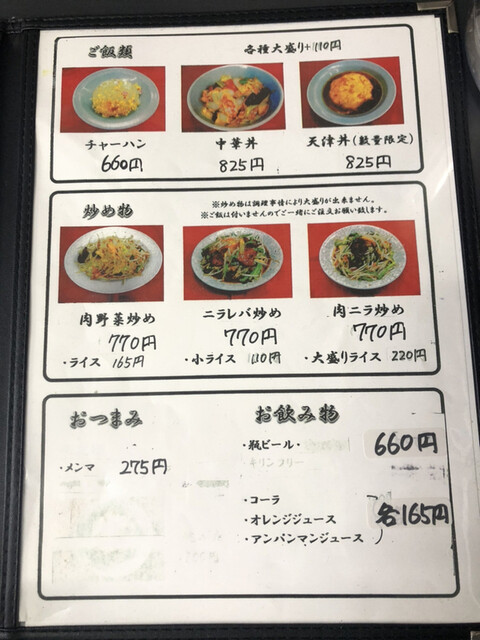 ご飯類
各種大盛り+110円
チャーハン
660円
中華丼
825円
天津丼(数量限定)
825円
炒め物
※炒め物は調理事情により大盛りが出来ません。
※ご飯は付いませんのでご一緒にご注文お願い致します。
肉野菜炒め
770円
ニラレバ炒め
770円
肉ニラ炒め
770円
・ライス 165円
・小ライス 110円
・大盛りライス 220円
おつまみ
・メンマ 275円
お飲み物
・瓶ビール・ 660円
キリンフリー
・コーラ
・オレンジジュース 各165円
・アンパンマンジュース